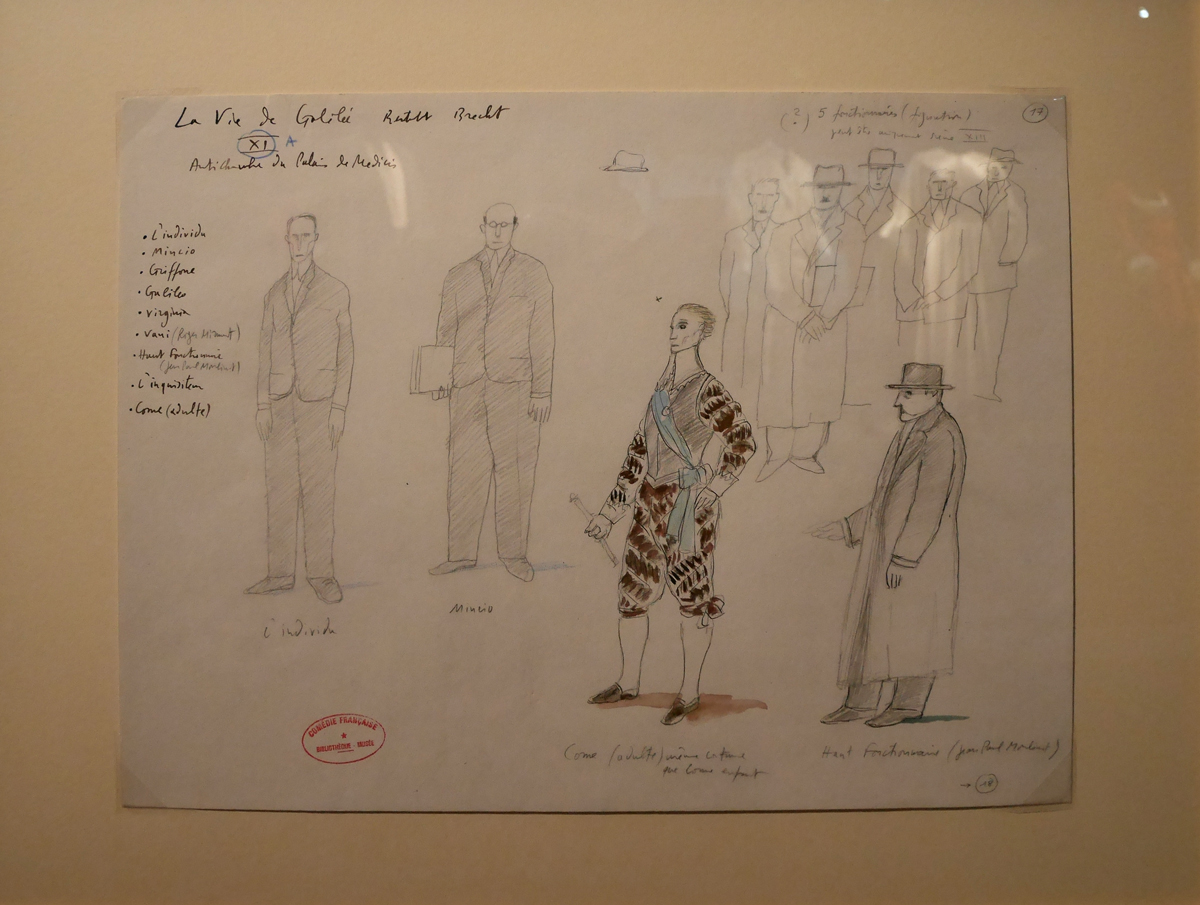 La Vie de Galilée Bertolt Brecht
XI A
Antichambre du Palais de Medicis
(?) 5 fonctionnaires (figuration)
peut être supprimé scène XIII
17
• L'individu
• Mincio
• Griffone
• Galilée
• Virginia
• Vani (Roger Mirmont)
• Haut Fonctionnaire
(Jean Paul Moulinot)
• L'inquisiteur
• Come (adulte)
L'individu
Mincio
COMÉDIE FRANÇAISE
BIBLIOTHÈQUE - MUSÉE
Come (adulte) même costume
que Come enfant
Haut Fonctionnaire (Jean Paul Moulinot)
→ 18